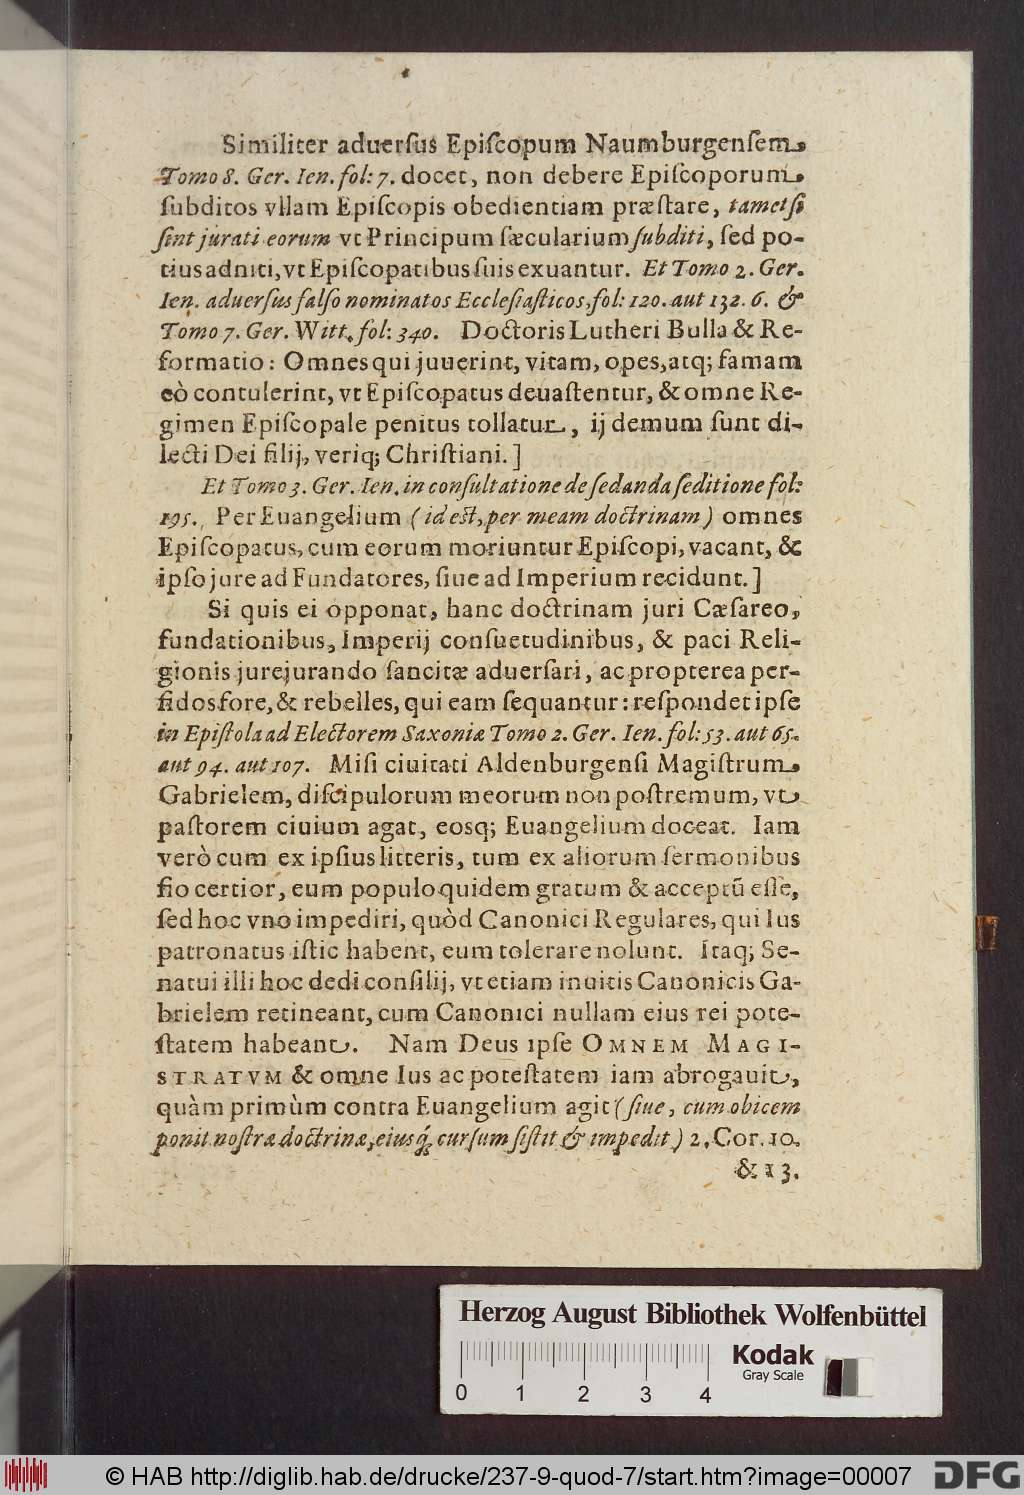 Similiter aduerſus Epiſcopum Naumburgenſem,
Tomo 8. Ger. Ien. fol: 7. docet, non debere Epiſcoporum,
ſubditos vllam Epiſcopis obedientiam præſtare, tametſi
ſint jurati eorum vt Principum ſæcularium ſubditi, ſed po-
tius adniti, vt Epiſcopatibus ſuis exuantur. Et Tomo 2. Ger.
Ien. aduerſus falſo nominatos Eccleſiaſticos, fol: 120. aut 132. 6. &
Tomo 7. Ger. Witt. fol: 340. Doctoris Lutheri Bulla & Re-
formatio: Omnes qui juuerint, vitam, opes, atq; famam
eò contulerint, vt Epiſcopatus deuaſtentur, & omne Re-
gimen Epiſcopale penitus tollatur, ij demum ſunt di-
lecti Dei filij, veriq; Chriſtiani.]
Et Tomo 3. Ger. Ien. in conſultatione de ſedanda ſeditione fol:
195. Per Euangelium (id est, per meam doctrinam) omnes
Epiſcopatus, cum eorum moriuntur Epiſcopi, vacant, &
ipſo jure ad Fundatores, ſiue ad Imperium recidunt.]
Si quis ei opponat, hanc doctrinam juri Cæſareo,
fundationibus, Imperij conſuetudinibus, & paci Reli-
gionis jurejurando ſancitæ aduerſari, ac propterea per-
fidos fore, & rebelles, qui eam ſequantur: reſpondet ipſe
in Epiſtola ad Electorem Saxoniæ Tomo 2. Ger. Ien. fol: 53. aut 65.
aut 94. aut 107. Miſi ciuitati Aldenburgenſi Magiſtrum,
Gabrielem, diſcipulorum meorum non poſtremum, vt
paſtorem ciuium agat, eosq; Euangelium doceat. Iam
verò cum ex ipſius litteris, tum ex aliorum ſermonibus
fio certior, eum populo quidem gratum & acceptū eſſe,
ſed hoc vno impediri, quòd Canonici Regulares, qui Ius
patronatus iſtic habent, eum tolerare nolunt. Itaq; Se-
natui illi hoc dedi conſilij, vt etiam inuitis Canonicis Ga-
brielem retineant, cum Canonici nullam eius rei pote-
ſtatem habeant. Nam Deus ipſe OMNEM MAGI-
STRATVM & omne Ius ac poteſtatem iam abrogauit,
quàm primùm contra Euangelium agit (ſiue, cum obicem
ponit noſtræ doctrinæ, eiusq́; curſum ſiſtit & impedit) 2. Cor. 10.
& 13.
Herzog August Bibliothek Wolfenbüttel
Kodak
Gray Scale
0 1 2 3 4
© HAB http://diglib.hab.de/drucke/237-9-quod-7/start.htm?image=00007
DFG